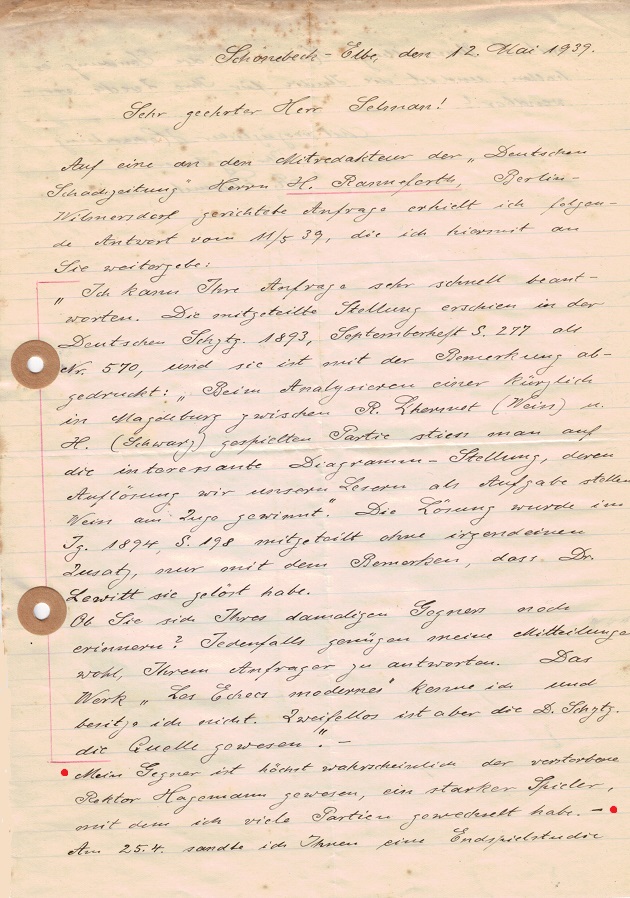 Schönebeck-Elbe, den 12. Mai 1939.
Sehr geehrter Herr Selman!
Auf eine an den Mitredakteur der „Deutschen
Schachzeitung" Herrn H. Ranneforth, Berlin-
Wilmersdorf gerichtete Anfrage erhielt ich folgen-
de Antwort vom 11/5 39, die ich hiermit an
Sie weitergebe:
„Ich kann Ihre Anfrage sehr schnell beant-
worten. Die mitgeteilte Stellung erschien in der
Deutschen Schztg. 1893, Septemberheft S. 277 als
Nr. 570, und sie ist mit der Bemerkung ab-
gedruckt: „Beim Analysieren einer kürzlich
in Magdeburg zwischen R. Lhermet (Weiss) u.
H. (Schwarz) gespielten Partie stiess man auf
die interessante Diagramm-Stellung, deren
Auflösung wir unsern Lesern als Aufgabe stellen
Weiss am Zuge gewinnt." Die Lösung wurde im
Jg. 1894, S. 198 mitgeteilt ohne irgendeinen
Zusatz, nur mit dem Bemerken, dass Dr.
Lewitt sie gelöst habe.
Ob Sie sich Ihres damaligen Gegners noch
erinnern? Jedenfalls genügen meine Mitteilungen
wohl, Ihrem Anfrager zu antworten. Das
Werk „Les Echecs modernes" kenne ich und
besitze ich nicht. Zweifellos ist aber die D. Schztg.
die Quelle gewesen." -
Mein Gegner ist höchst wahrscheinlich der verstorbene
Rektor Hagemann gewesen, ein starker Spieler,
mit dem ich viele Partien gewechselt habe. -
Am 25.4. sandte ich Ihnen eine Endspielstudie